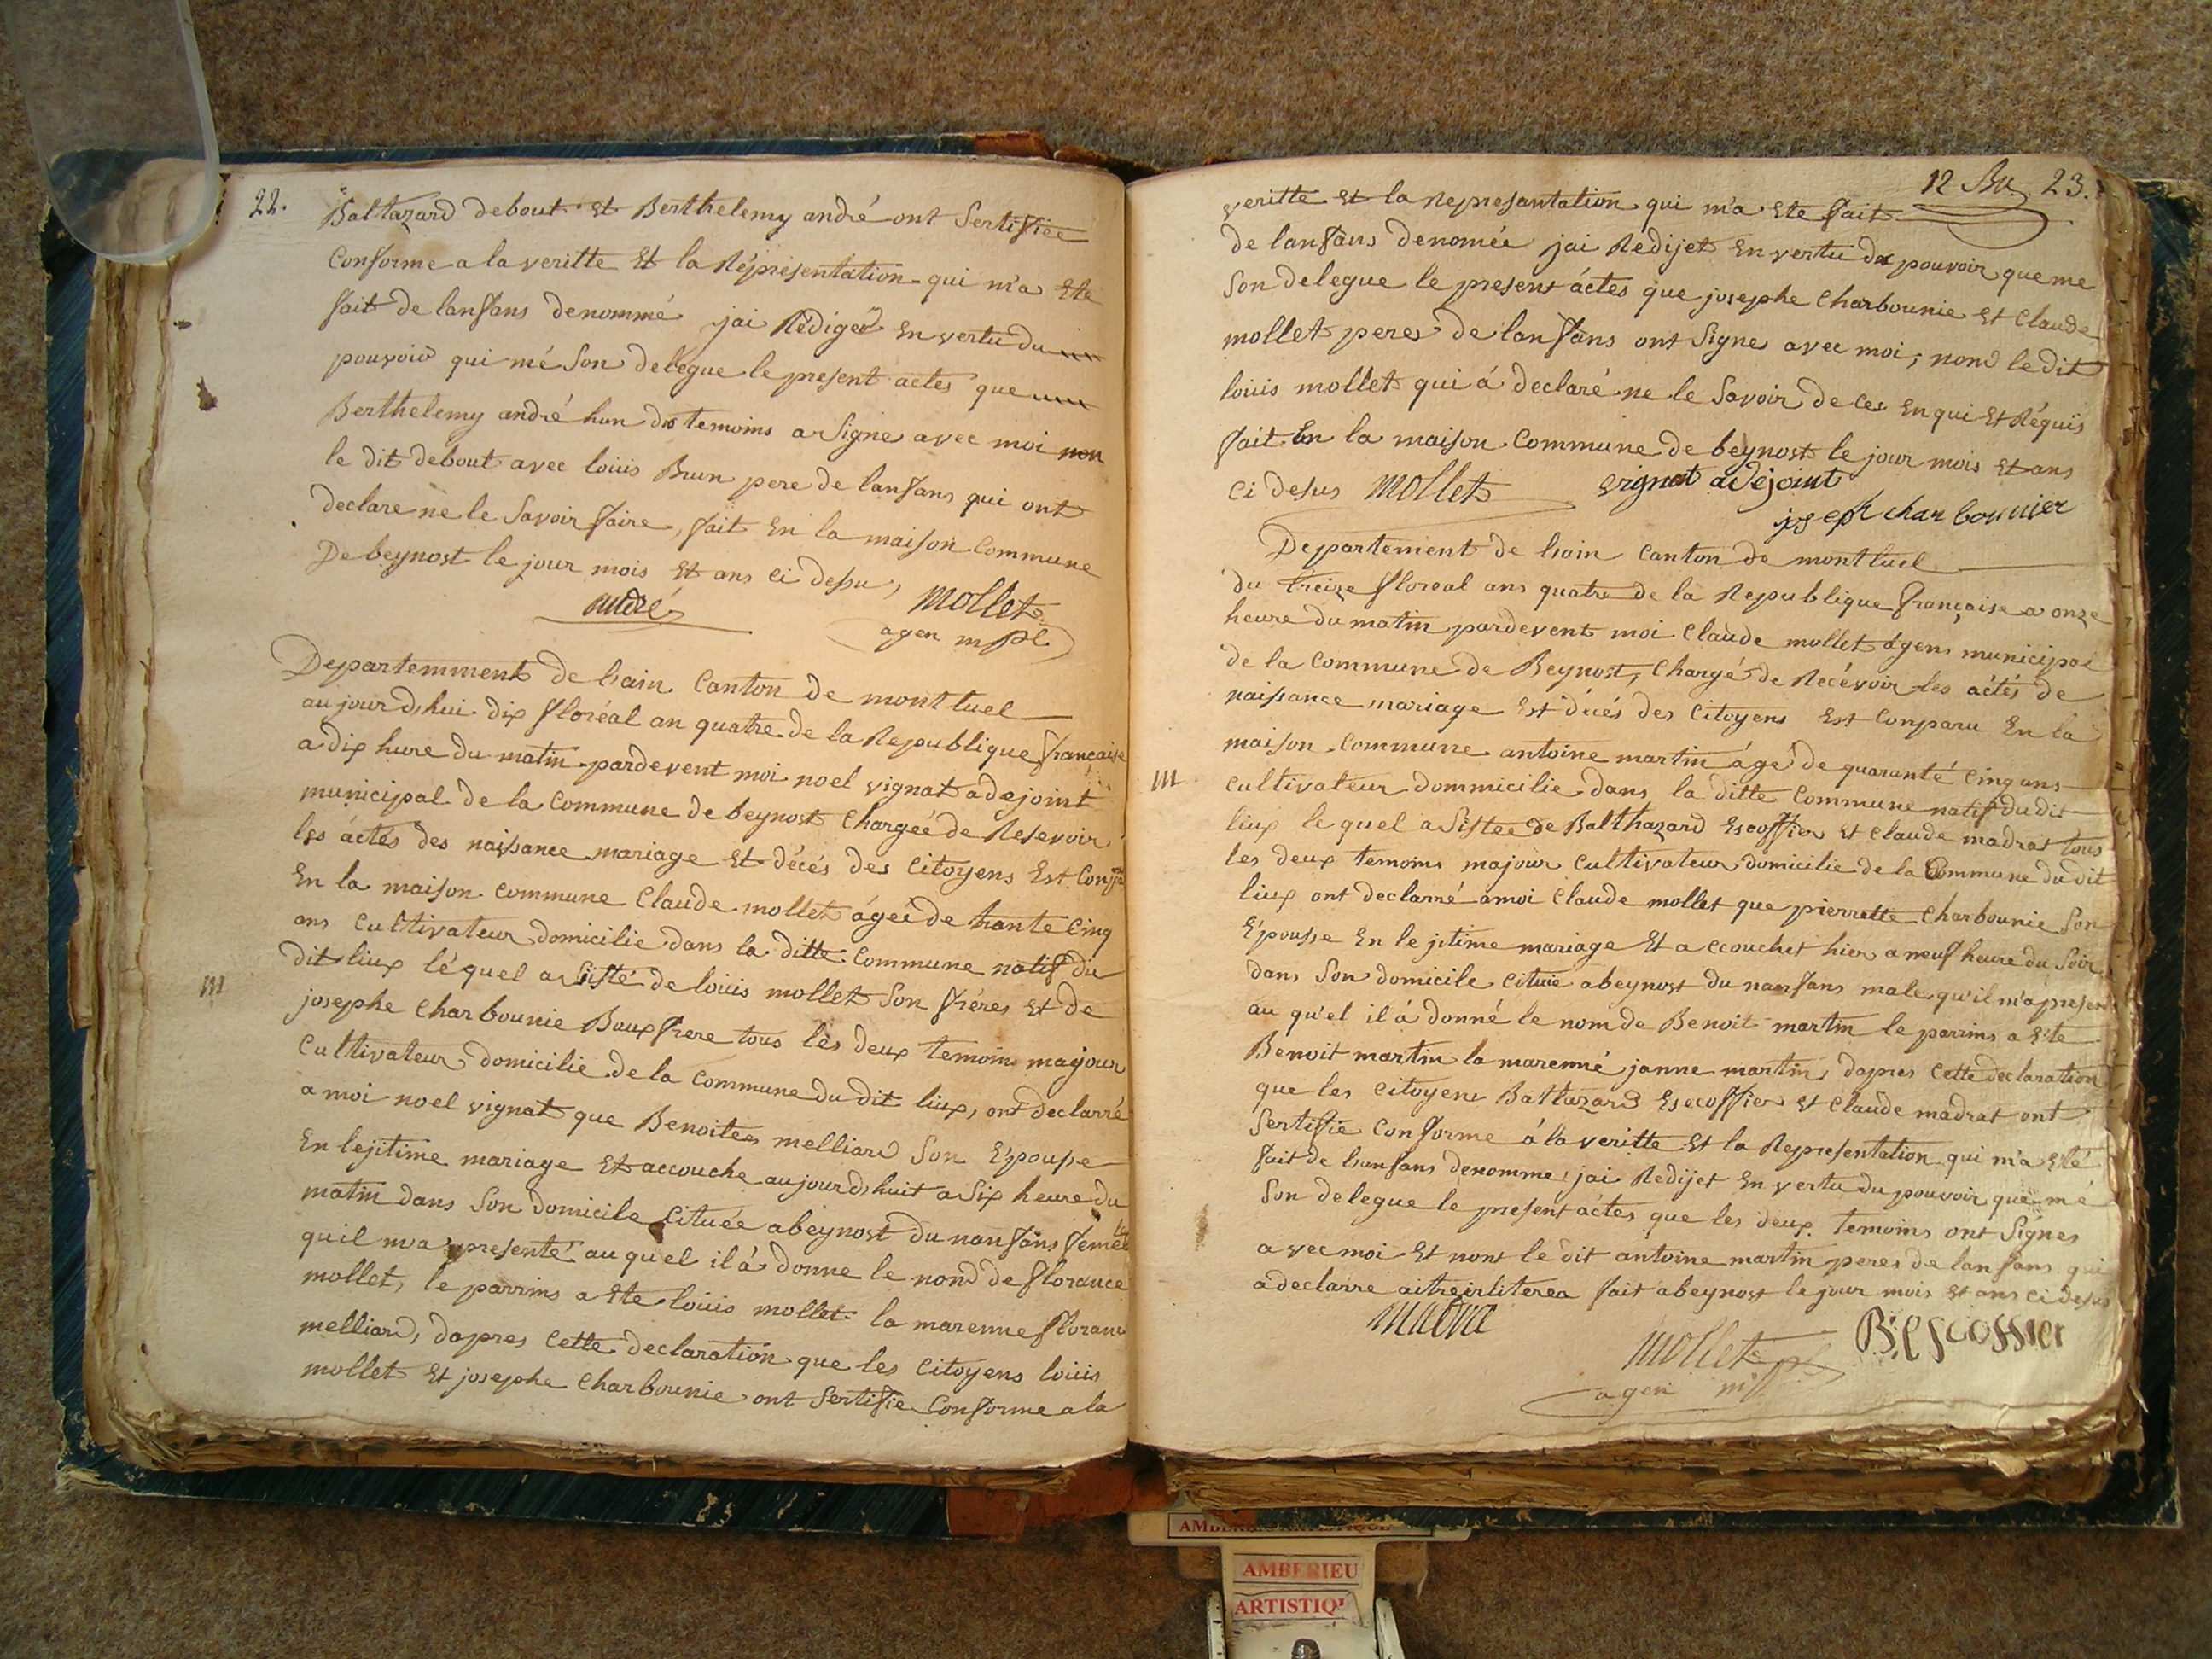 22.
Baltazard debout et Berthelemy andré ont Sertifiee
Conforme a la veritte Et la Réprésentation qui m'a Ete
fait de lanfans denommé jai Rédiger En vertu du
pouvoir qui mé Son delegue le present actes que
Berthelemy andré hun des temoins a Signe avec moi non
le dit debout avec loüis Brun pere de lanfans qui ont
declare ne le Savoir faire, fait En la maison Commune
De beynost le jour mois Et ans ci dessu,
andré Mollet
agen mpl
Departemment de lain Canton de montluel
aujourdhui dix floréal an quatre de la Republique française
a dix hure du matin pardevent moi noel vignat adejoint
municipal de la Commune de beynost Chargeé de Resevoir
les áctés des naissance mariage Et décés des Citoyens Est Conparu
En la maison Commune Claude mollet ágée de trante Cinq
ans Cultivateur domicilie dans la ditte Commune natif du
dit liux léquel asisté de loüis mollet Son fréres Et de
josephe Charbounie Bauxfrere tous les deux temoins majour
Cultivateur domicilie de la Commune du dit liux, ont declarré
a moi noel vignat que Benoitee melliard Son Epousse
En lejitime mariage Et accouche aujourdhuit a Six heure du
matin dans Son domicile Cituée abeynost du nanfans femelle
quil ma presenté au quel il á donne le nond de florance
mollet, le parrins a Ete loüis mollet la marenne florance
melliard, dapres Cette declaration que les Citoyens loüis
mollet Et josephe Charbounie ont Sertifie Conforme a la
M
12 Bu 23.
veritte Et la Representation qui m'a Ete fait
de lanfans denomée jai Redijet En vertu du pouvoir que me
Son delegue le present áctes que josephe Charbounie Et Claude
mollet peres de lanfans ont Signe avec moi, nond le dit
loüis mollet qui á declaré ne le Savoir de ces Enqui Et Réquis
fait En la maison Commune de beynost le jour mois Et ans
Ci desus Mollet vignat adejoint
joseph charbounier
Departement de lain Canton de montluel
du treize floreal ans quatre de la Republique française a onze
heure du matin pardevent moi Claude mollet ágens municipal
de la Commune de Beynost, Chargé de Recévoir les áctés de
naissance mariage Est décés des Citoyens Est Conparu En la
maison Commune antoine martin ágé de quaranté Cinq ans
M
Cultivateur dommicilie dans la ditte Commune natif du dit
liux le quel asistee de Balthazard Escoffier Et Claude madrat tous
les deux temoins majour Cultivateur domicilie de la Commune du dit
liux ont declarré amoi Claude mollet que pierrette Charbounie Son
Epousse En lejitime mariage Et accouchet hier a neuf heure du Soir
dans Son domicile Cituie abeynost du nanfans male qu'il m'apresen
au qu'el il á donné le nom de Benoit martin le parrins a Ete
Benoit martin la marenné janne martin, dapres Cette declaration
que les Citoyens Baltazard Esecoffier Et Claude madrat ont
Sertifie Conforme á la veritte Et la Representation qui m'a Eté
fait de lanfans denomme, jai Redijet En vertu du pouvoir que mé
Son delegue le present áctes que les deux temoins ont Signes
avec moi Et nont le dit antoine martin peres de lanfans qui
a declarre aitreirliterea fait abeynost le jour mois Et ans ci desus
madra Mollet B: escossier
agen mpl
AMBERIEU
ARTISTIQ